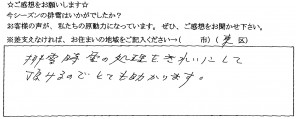 ☆ご感想をお願いします☆
今シーズンの排雪はいかがでしたか？
お客様の声が、私たちの原動力になっています。ぜひ、ご感想をお聞かせ下さい。
※差支えなければ、お住まいの地域をご記入ください→(　　市)(東 区)
排雪時雪の処理をきれいにして
頂けるのでとても助かります。